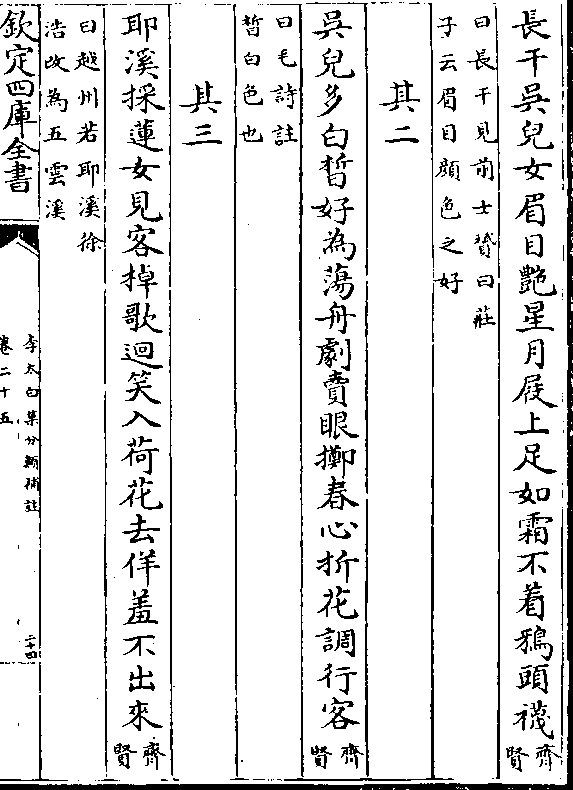 長干吳兒女眉目艷星月屐上足如霜不着鴉頭襪齊賢
曰長干見前士贇曰莊
子云眉目顔色之好
其二
吳兒多白皙好為蕩舟劇賣眼擲春心折花調行客齊賢
曰毛詩註
皙白色也
其三
耶溪採蓮女見客掉歌迴笑入荷花去佯羞不出來齊賢
曰越州若耶溪徐
浩改為五雲溪
欽定四庫全書
李太白集分類補註
卷二十五
二十四